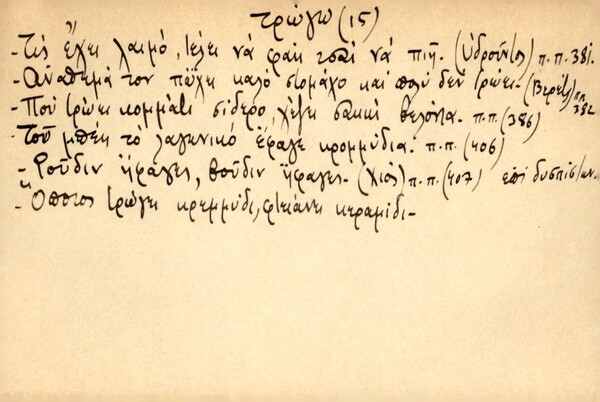 τρώγω (15)
- Τίς ἔχει λαιμό, θέλει νά φάῃ τσαί νά πιῇ. (Ὑδροῦς) π.π. 381.
- Ἀνάθεμά τον πὤχει καλό στομάχο καί πολύ δέν τρώει. (Βερέττ.) π.π. 382
- Πού τρώει κομμάτι σίδερο, χέζει σακκί βελόνια. π.π. (386)
- Τοῦ μπεκ τό λαγηνικό ἔφαγε κρομμύδια. π.π. (406)
- Ρούδιν ἤφαγες, βούδιν ἤφαγες. (Χίος) π.π. (407) ἐπί δυσπιστ.
- Ὅποιος τρώγει κρεμμύδι, φτειάνει κεραμίδι -